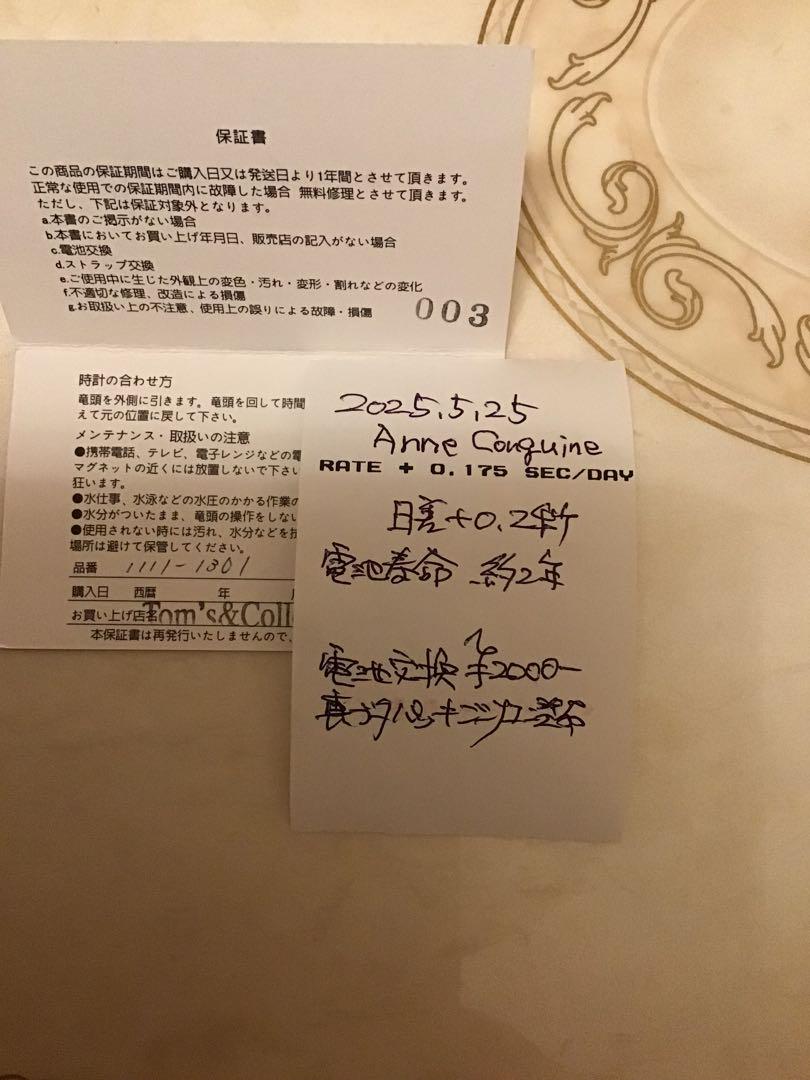 保証書
この商品の保証期間はご購入日又は発送日より1年間とさせて頂きます。
正常な使用での保証期間内に故障した場合 無料修理とさせて頂きます。
ただし、下記は保証対象外となります。
a.本書のご掲示がない場合
b.本書においてお買い上げ年月日、販売店の記入がない場合
c.電池交換
d.ストラップ交換
e.ご使用中に生じた外観上の変色・汚れ・変形・割れなどの変化
f.不適切な修理、改造による損傷
g.お取扱い上の不注意、使用上の誤りによる故障・損傷
003
時計の合わせ方
竜頭を外側に引きます。竜頭を回して時間
えて元の位置に戻して下さい。
メンテナンス・取扱いの注意
●携帯電話、テレビ、電子レンジなどの電
マグネットの近くには放置しないで下さい
狂います。
●水仕事、水泳などの水圧のかかる作業の
●水分がついたまま、竜頭の操作をしない
●使用されない時には汚れ、水分などを
場所は避けて保管してください。
品番 1111-1301
購入日 西暦 年
お買い上げ店名 Tom's&Coll
本保証書は再発行いたしませんので、
2025.5.25
Anne Conquine
RATE + 0.175 SEC/DAY
日差+0.2秒
電池寿命 約2年
電池交換 で ¥2000-
裏ブタパッキン